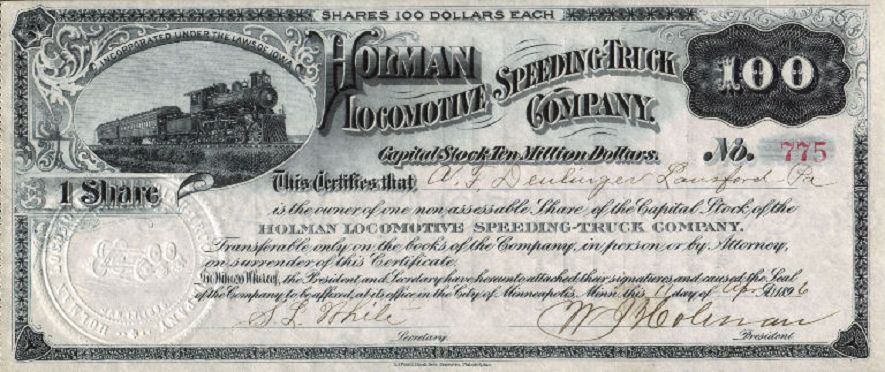 SHARES 100 DOLLARS EACH
INCORPORATED UNDER THE LAWS OF IOWA
HOLMAN
LOCOMOTIVE SPEEDING-TRUCK
COMPANY.
100
Capital Stock Ten Million Dollars.
No. 775
1 Share
This Certifies that Lansford Pa
is the owner of one non-assessable Share of the Capital Stock of the
HOLMAN LOCOMOTIVE SPEEDING-TRUCK COMPANY.
Transferable only on the books of the Company, in person or by Attorney,
on surrender of this Certificate.
In Witness Whereof, the President and Secretary have hereunto attached their signatures and caused the Seal
of the Company to be affixed, at its office in the City of Minneapolis, Minn. this day of Apr A.D. 1896
S. L. White
W J Holman
Secretary.
President.